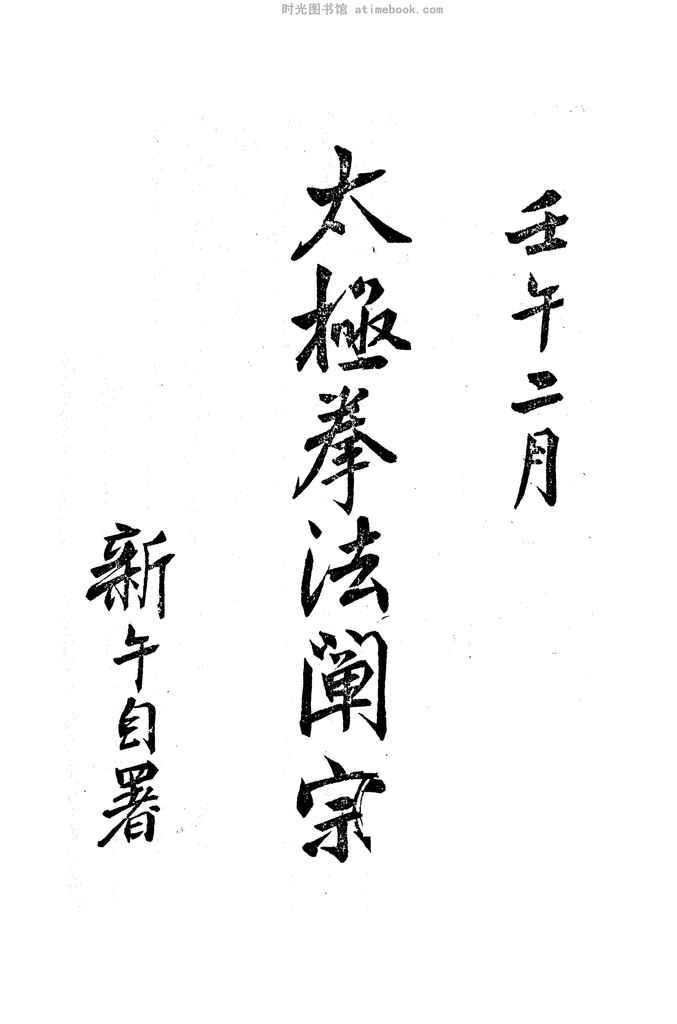 时光图书馆 atimebook.com
壬午二月
太極拳法闡宗
新午自署